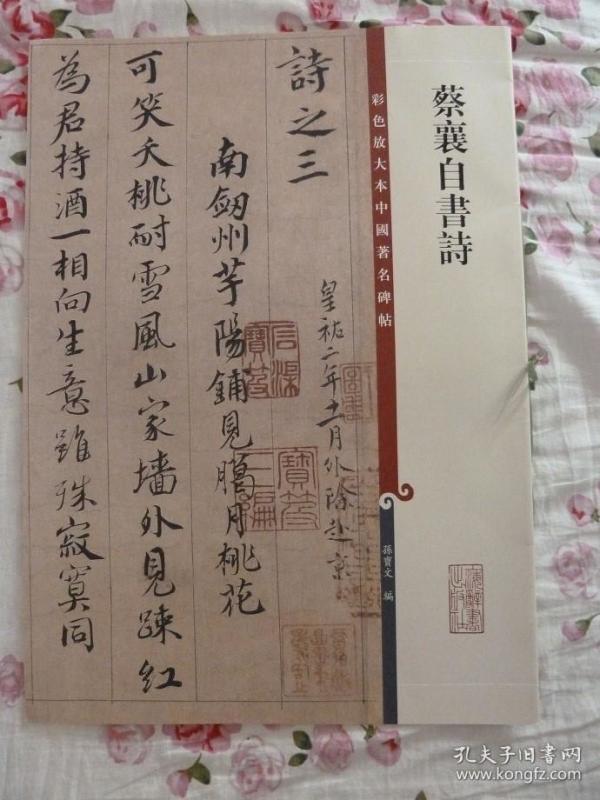 蔡襄自書詩
彩色放大本中國著名碑帖
孫寶文 編
詩之三
皇祐二年十一月外除赴京
南劔州芋陽鋪見臈月桃花
可笑夭桃耐雪風山家墻外見踈紅
為君持酒一相向生意雖殊寂寞同
孔夫子旧書网
www.kongfz.com